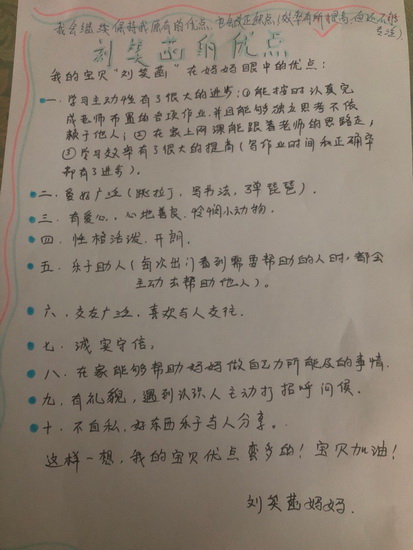 我会继续保持我原有的优点,也会改正缺点!(效率有所提高,但还不够
专注)
刘笑菡的优点
我的宝贝“刘笑菡”在妈妈眼中的优点:
一.学习主动性有了很大的进步:①能按时认真完
成老师布置的各项作业,并且能够独立思考不依
赖于他人;②在家上网课能跟着老师的思路走,
③学习效率有了很大的提高(写作业时间和正确率
都有了进步)。
二.爱好广泛(跳拉丁、写书法,弹琵琶)。
三.有爱心,心地善良.怜悯小动物.
四.性格活泼.开朗.
五.乐于助人(每次出门看到需要帮助的人时,都会
主动去帮助他人)。
六.交友广泛,喜欢与人交往.
七.诚实守信,
八.在家能够帮助妈妈做自己力所能及的事情.
九.有礼貌,遇到认识人主动打招呼问候.
十.不自私,好东西乐于与人分享。
这样一想,我的宝贝优点蛮多的!宝贝加油!
刘笑菡妈妈.